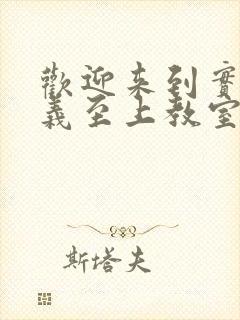 歡迎来到實
義至上教室
斯塔夫